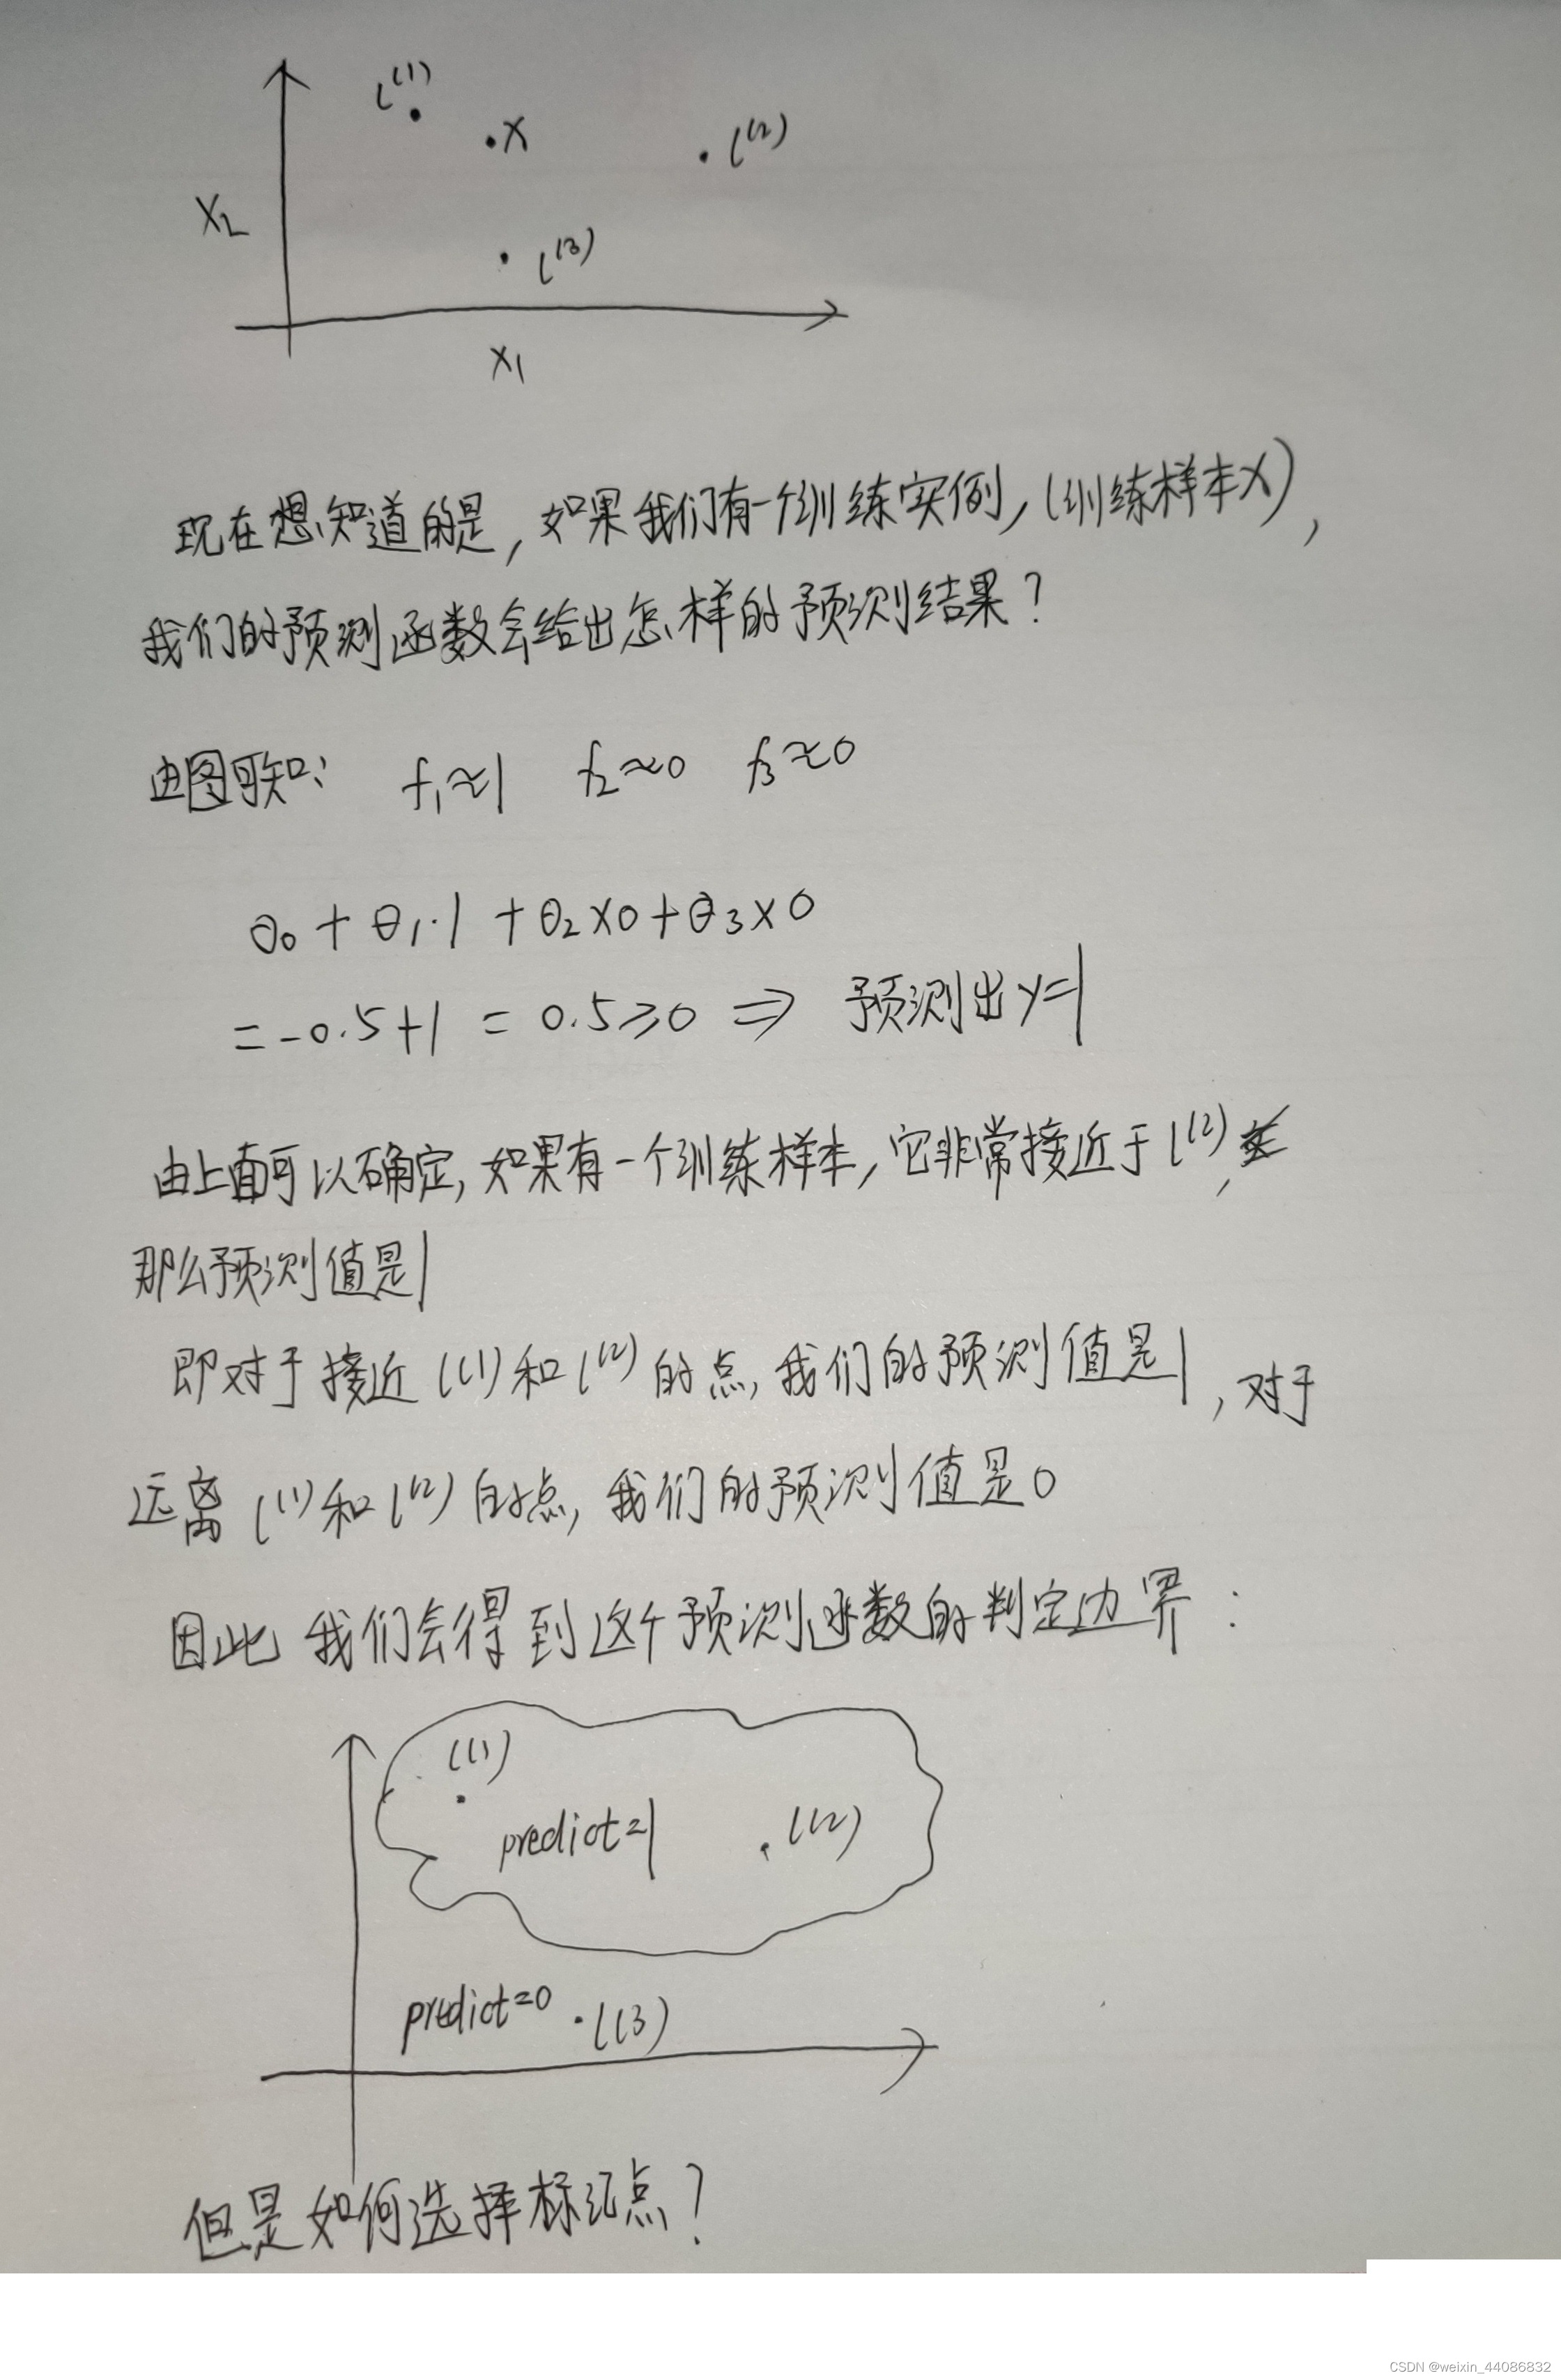 l⁽¹⁾
·X
l⁽²⁾
X₂
l⁽³⁾
X₁
现在想知道的是,如果我们有一个训练实例,(训练样本X),
我们的预测函数会给出怎样的预测结果?
由图可知: f₁≈1 f₂≈0 f₃≈0
θ₀+θ₁·1+θ₂×0+θ₃×0
=-0.5+1=0.5≥0 ⇒ 预测出y=1
由上面可以确定,如果有一个训练样本,它非常接近于l⁽²⁾,
那么预测值是1
即对于接近l⁽¹⁾和l⁽²⁾的点,我们的预测值是1,对于
远离l⁽¹⁾和l⁽²⁾的点,我们的预测值是0
因此我们会得到这个预测函数的判定边界:
l⁽¹⁾
predict=1 ·l⁽²⁾
predict=0 ·l⁽³⁾
但是如何选择标记点?
CSDN @weixin_44086832